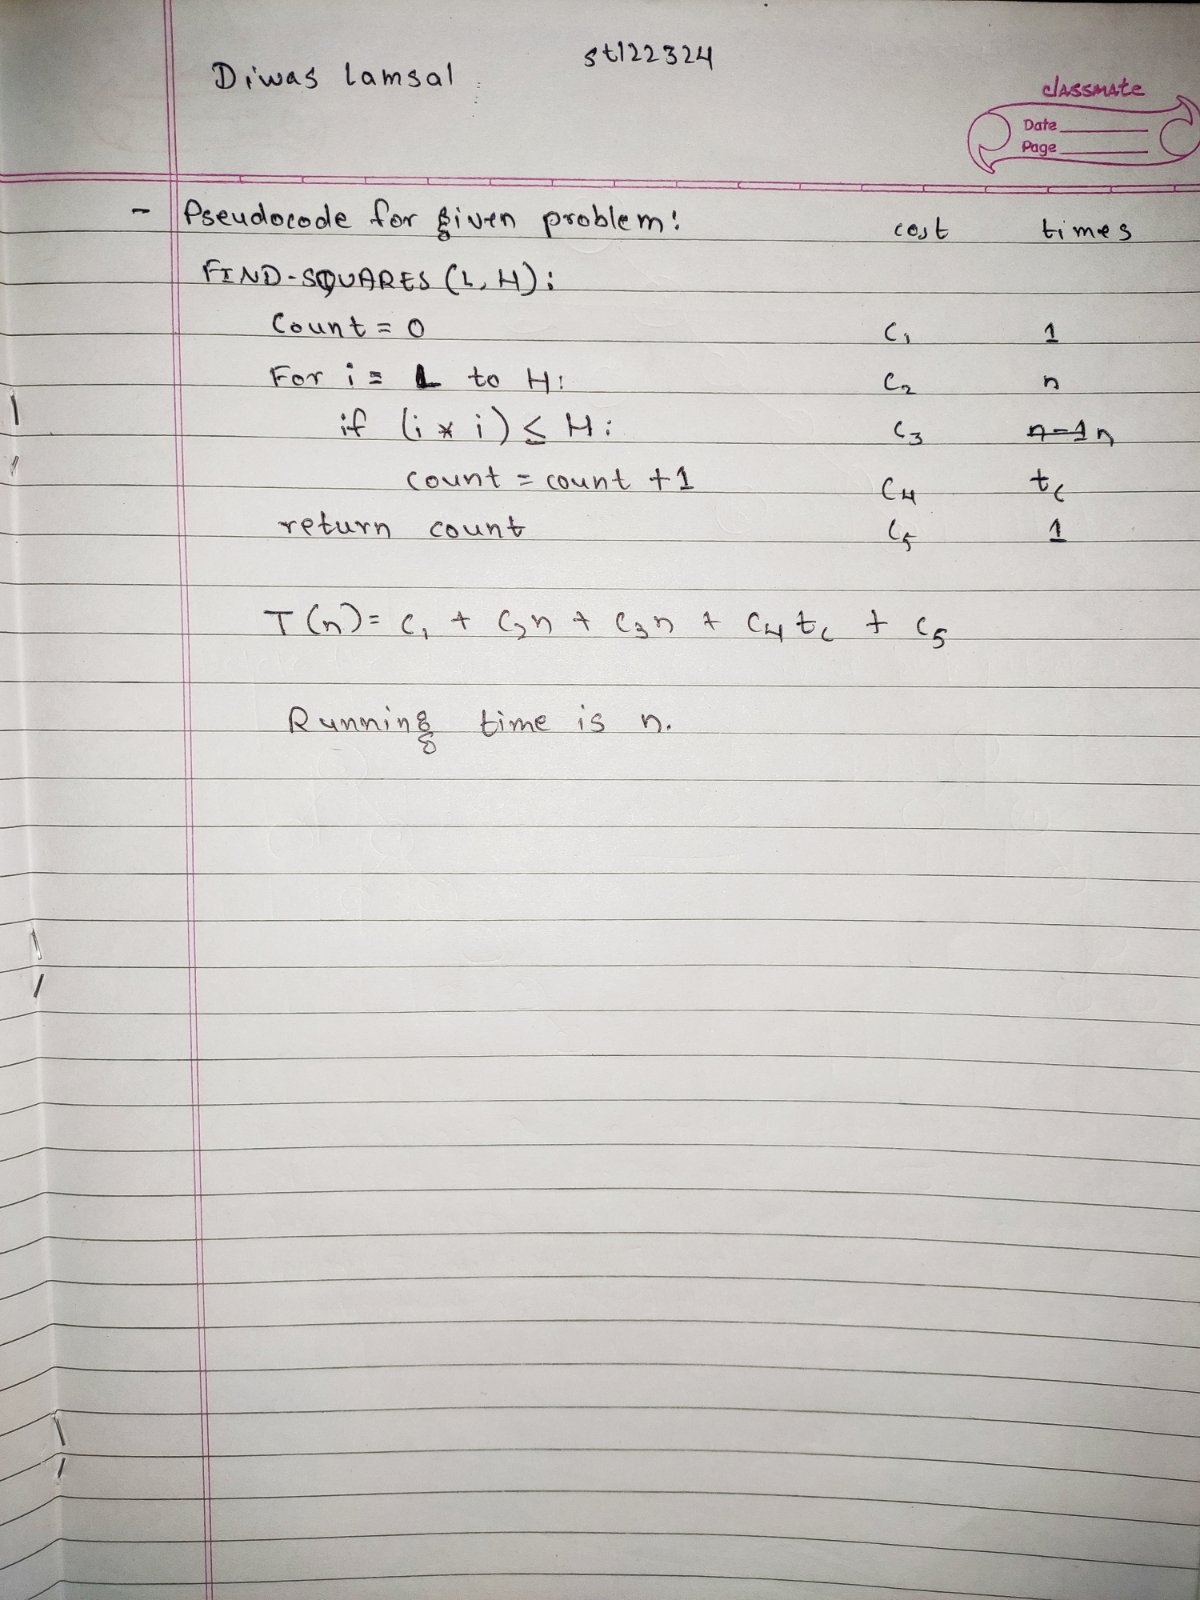 Diwas Lamsal st122324
classmate
Date
Page
- Pseudocode for given problem: cost times
FIND-SQUARES (L, H):
Count = 0 C₁ 1
For i = L to H: C₂ n
if (i * i) ≤ H: C₃ n-1 n
count = count + 1 C₄ tc
return count C₅ 1
T(n) = C₁ + C₂n + C₃n + C₄tc + C₅
Running time is n.